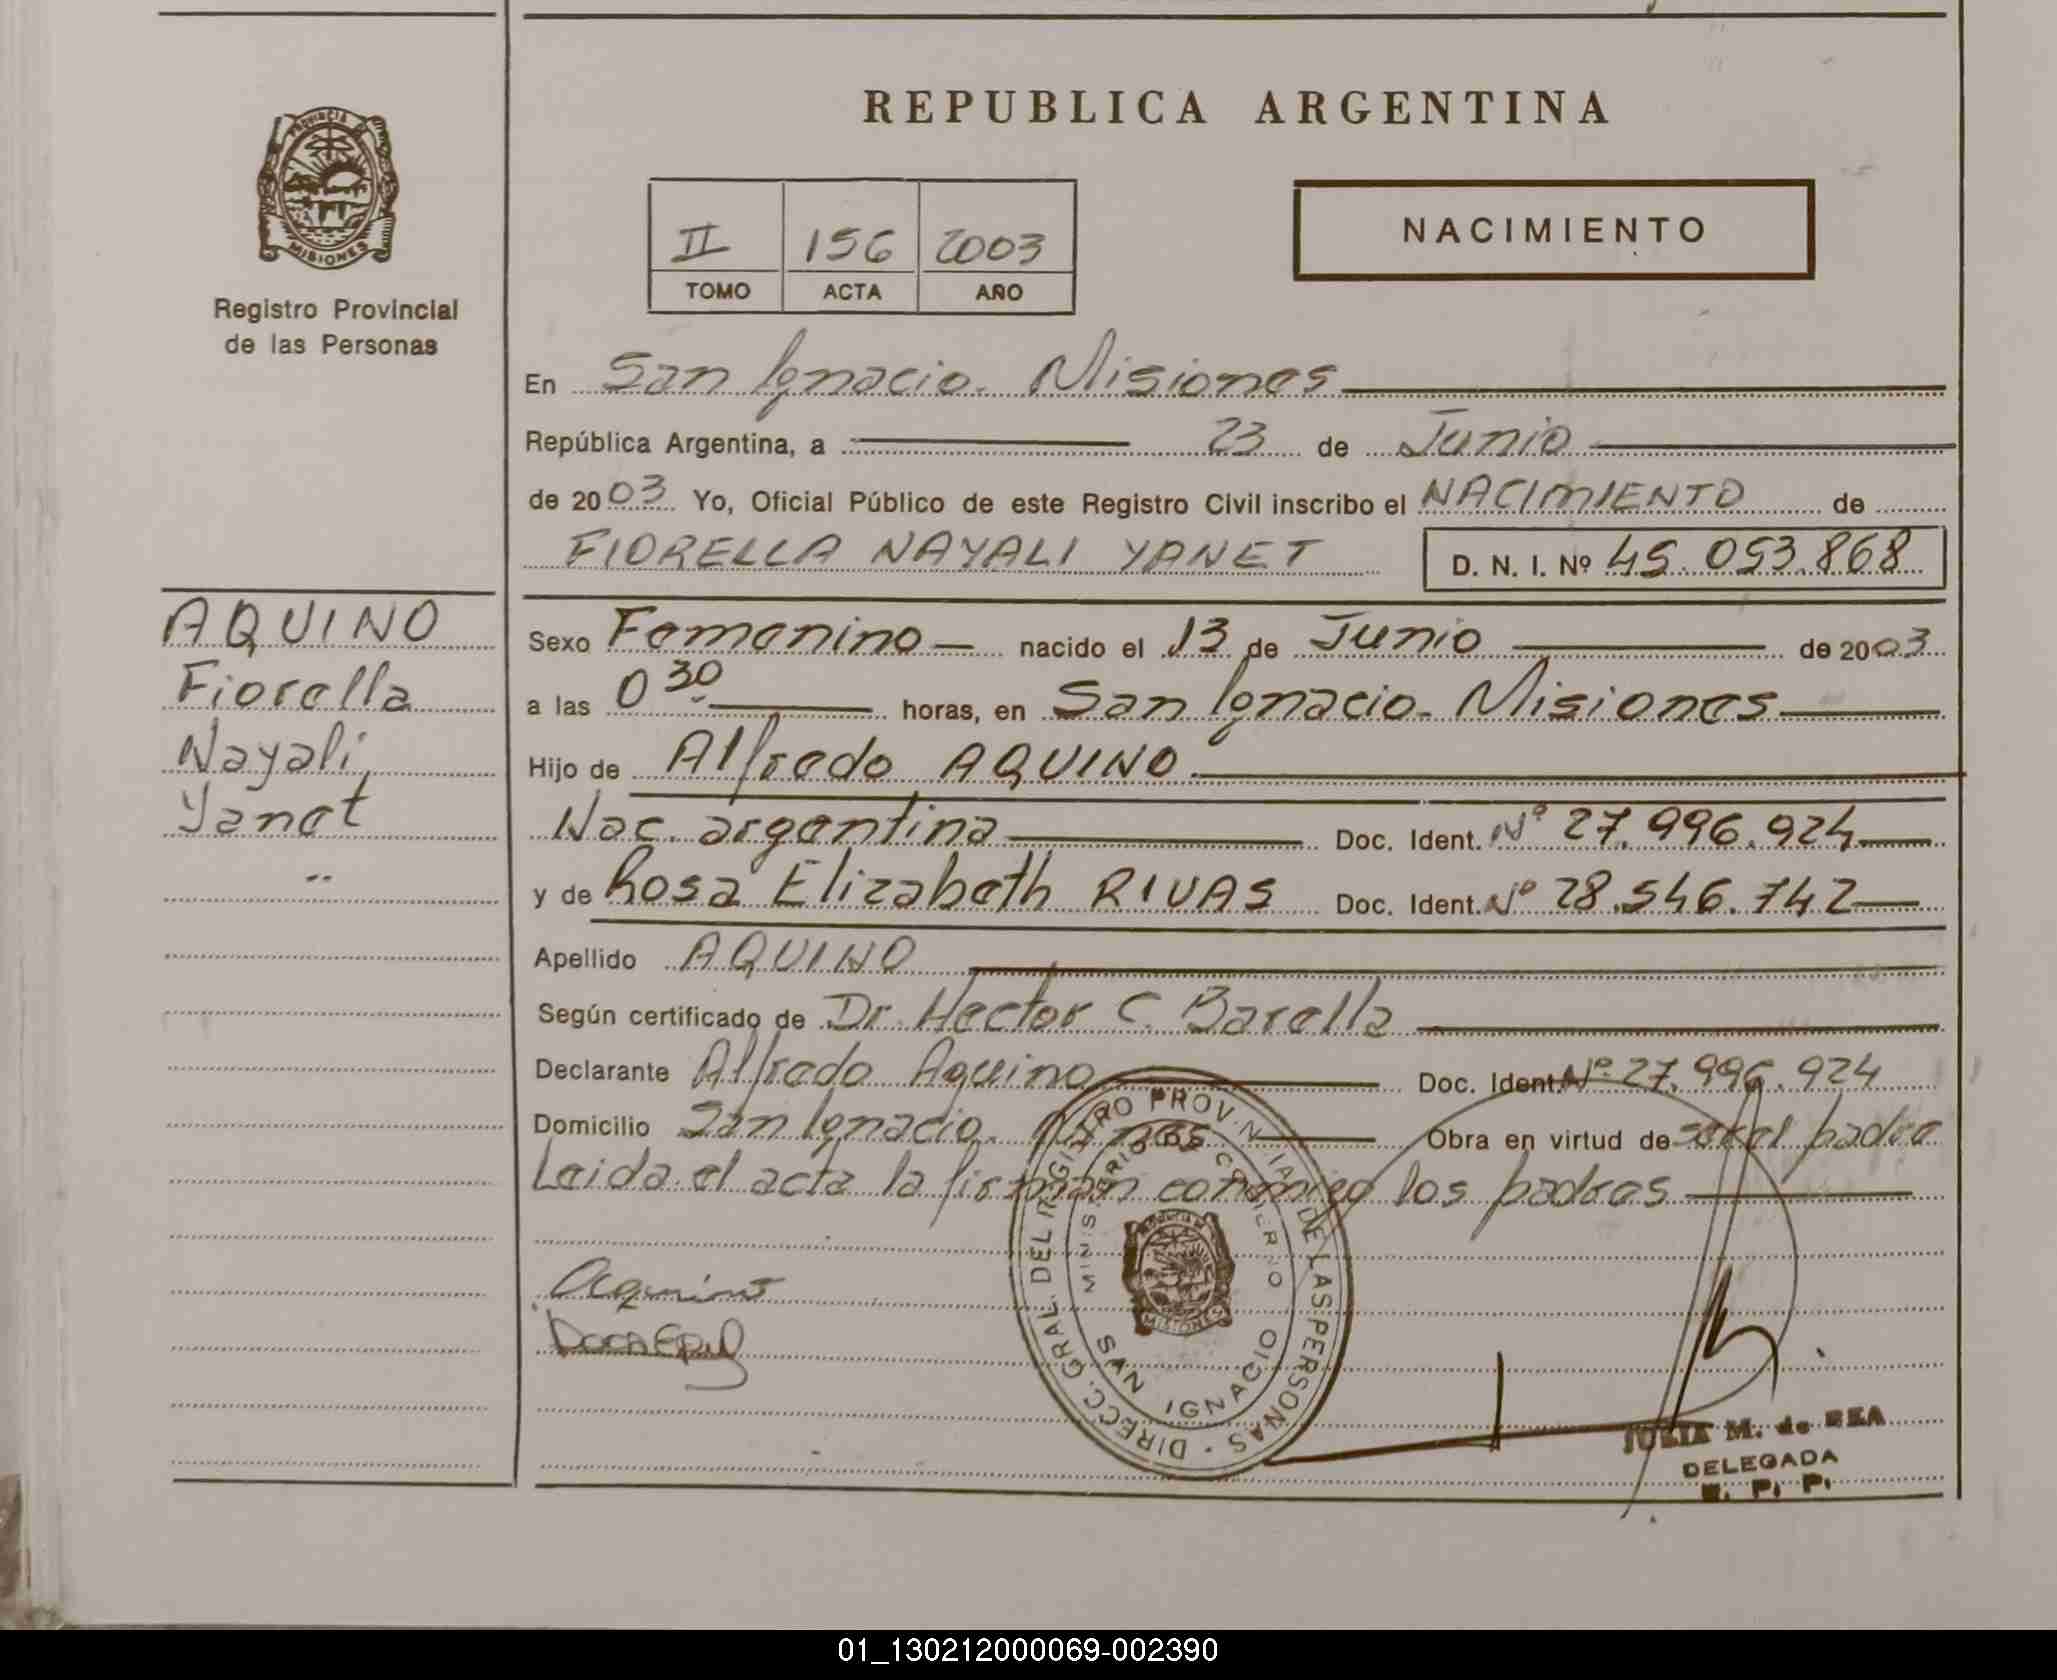 REPUBLICA ARGENTINA
PROVINCIA DE
MISIONES
Registro Provincial
de las Personas
II 156 2003
TOMO ACTA AÑO
NACIMIENTO
En San Ignacio. Misiones
República Argentina, a 23 de Junio
de 2003 Yo, Oficial Público de este Registro Civil inscribo el NACIMIENTO de
FIORELLA NAYALI YANET D. N. I. Nº 45.053.868
AQUINO
Fiorella
Nayali
Yanet
Sexo Femenino nacido el 13 de Junio de 2003
a las 0 30 horas, en San Ignacio. Misiones
Hijo de Alfredo AQUINO
Nac. argentina Doc. Ident. Nº 27.996.924
y de Rosa Elizabeth RIVAS Doc. Ident. Nº 28.546.742
Apellido AQUINO
Según certificado de Dr. Hector C. Barella
Declarante Alfredo Aquino Doc. Ident. Nº 27.996.924
Domicilio San Ignacio. Misiones Obra en virtud de ser el padre
Leida el acta la firman conmigo los padres
Aquino
DIRECC. GRAL. DEL REGISTRO PROVINCIAL DE LAS PERSONAS
MINISTERIO DE GOBIERNO
MISIONES
SAN IGNACIO
JULIA M. de REA
DELEGADA
R. P. P.
01_130212000069-002390